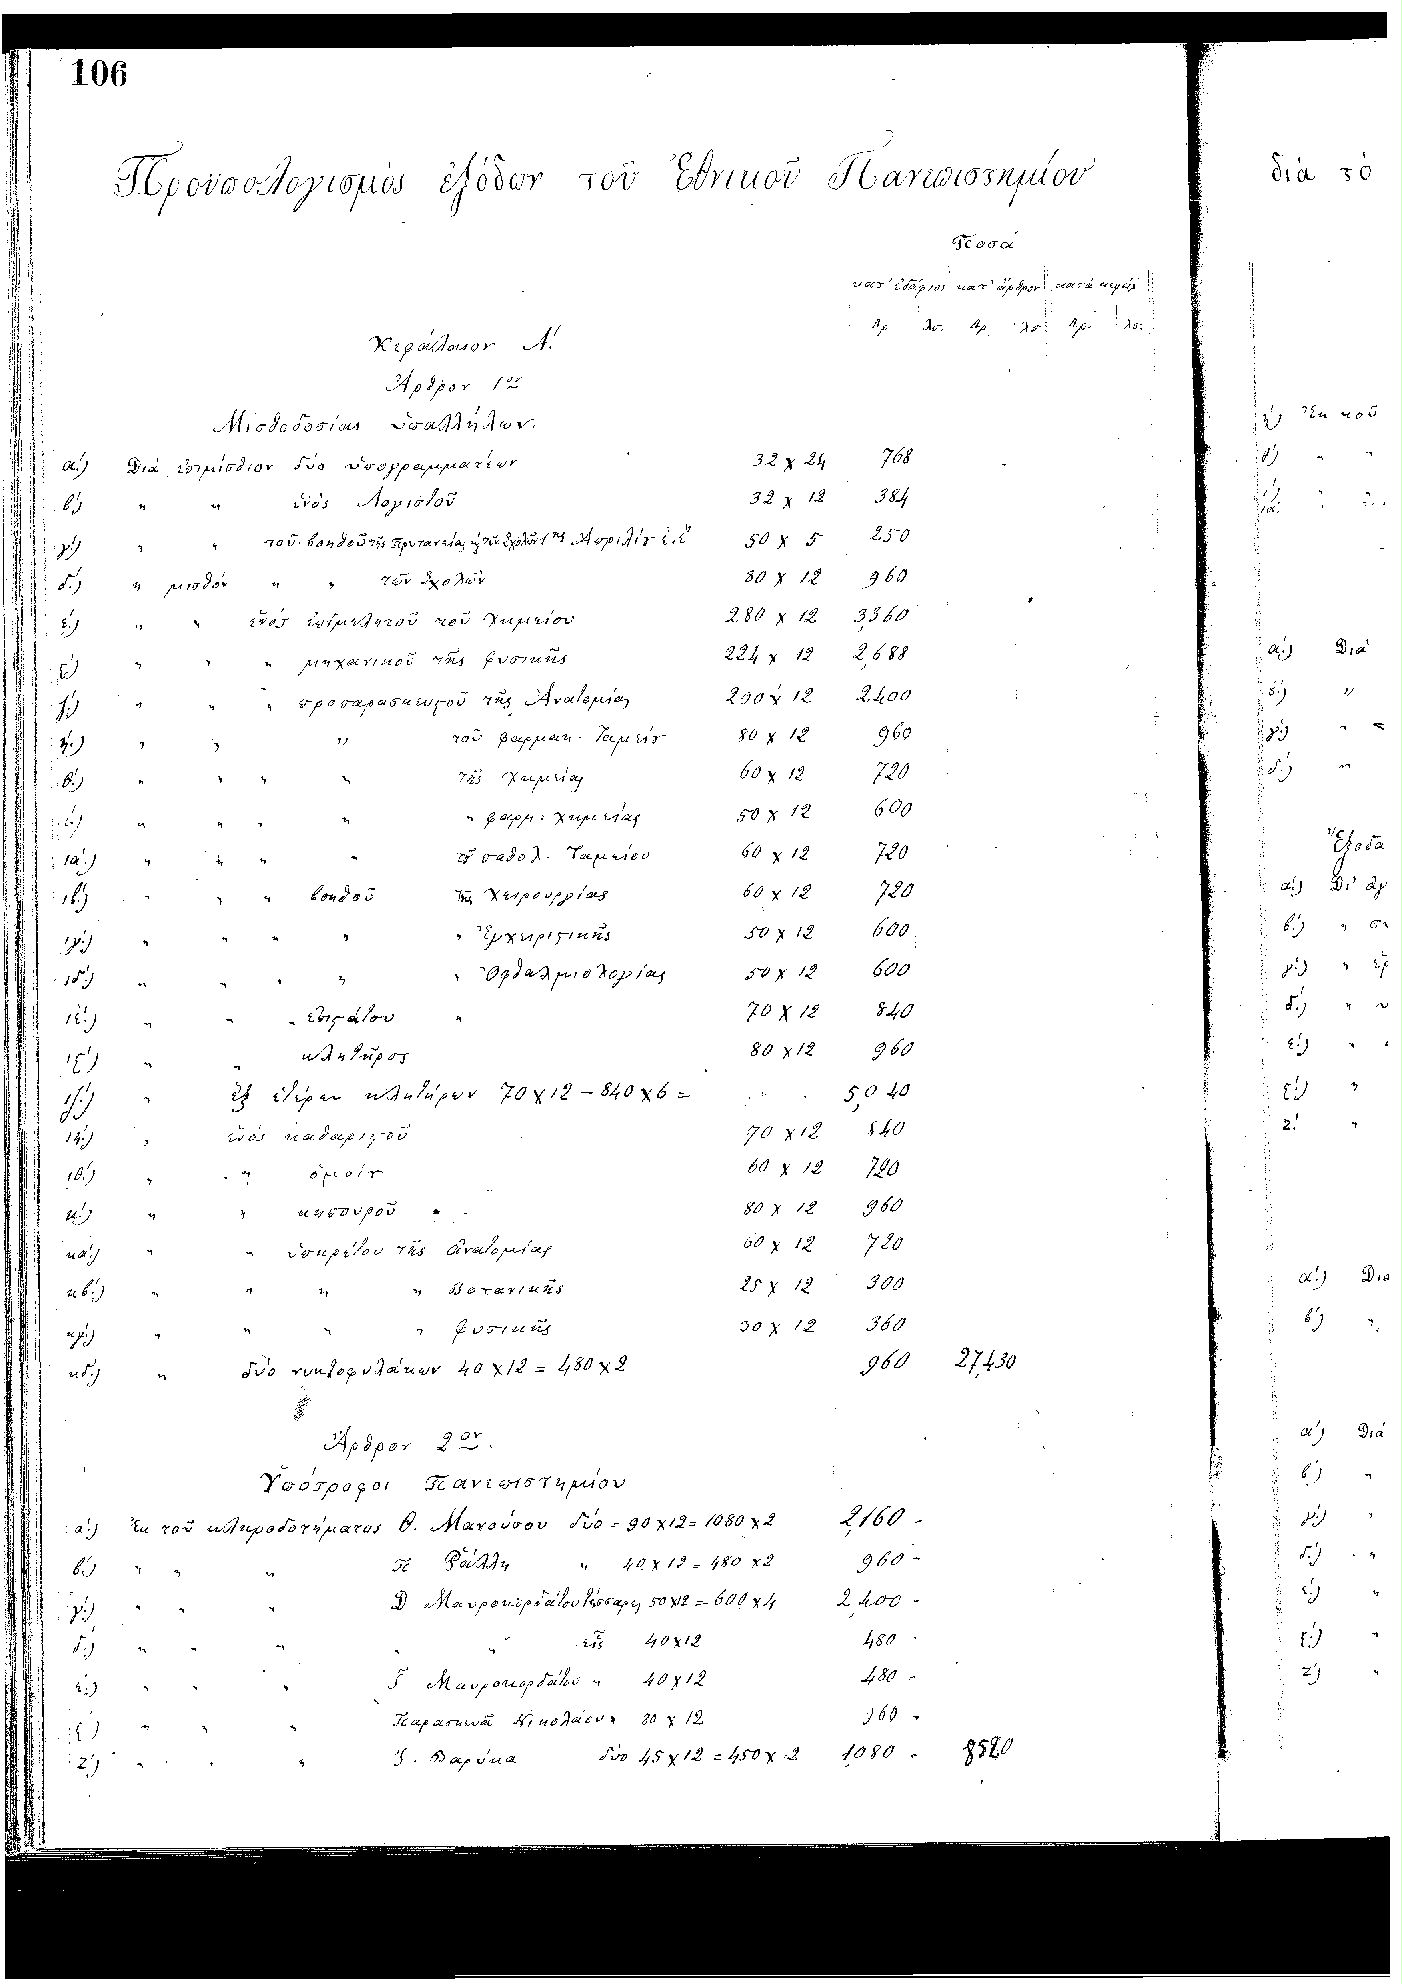 106
Προϋπολογισμὸς ἐξόδων τοῦ Ἐθνικοῦ Πανεπιστημίου
διὰ τὸ
Ποσά
κατ' ἐδάφιον κατ' ἄρθρον κατὰ κεφάλ
Δρ. λπ. Δρ. λπ. Δρ. λπ.
Κεφάλαιον Α΄.
Ἄρθρον 1ον
Μισθοδοσίας ὑπαλλήλων.
α΄.) Διὰ ἐπιμίσθιον δύο ὑπογραμματέων 32 x 24 768
β΄.) " " ἑνὸς Λογιστοῦ 32 x 12 384
γ΄.) " " τοῦ βοηθοῦ τῆς Πρυτανείας 50 x 5 250
δ΄.) " μισθὸν " " τῶν Σχολῶν 80 x 12 960
ε΄.) " " ἑνὸς ἐπιμελητοῦ τοῦ Χημείου 280 x 12 3,360
ϛ΄) " " " μηχανικοῦ τῆς φυσικῆς 224 x 12 2,688
ζ΄.) " " " προπαρασκευαστοῦ τῆς Ἀνατομίας 200 x 12 2,400
η΄.) " " " τοῦ φαρμακ. Ταμείου 80 x 12 960
θ΄.) " " " " τῆς Χημείας 60 x 12 720
ι΄.) " " " " " φαρμ. Χημείας 50 x 12 600
ια΄.) " " " " τοῦ παθολ. Ταμείου 60 x 12 720
ιβ΄.) " " " βοηθοῦ τῆς Χειρουργίας 60 x 12 720
ιγ΄.) " " " " " Ἐγχειριτικῆς 50 x 12 600
ιδ΄.) " " " " " Ὀφθαλμιολογίας 50 x 12 600
ιε΄.) " " " ἐπιστάτου " 70 x 12 840
ιϛ΄) " " κλητῆρος 80 x 12 960
ιζ΄.) " ἓξ ἑτέρων κλητήρων 70 x 12 – 840 x 6 = . . . 5,040
ιη΄.) " ἑνὸς καθαριστοῦ 70 x 12 840
ιθ΄.) " " ὁμοίου 60 x 12 720
κ΄.) " " κηπουροῦ " 80 x 12 960
κα΄.) " " ὑπηρέτου τῆς Ἀνατομίας 60 x 12 720
κβ΄.) " " " " Βοτανικῆς 25 x 12 300
κγ΄.) " " " " φυσικῆς 30 x 12 360
κδ΄.) " δύο νυκτοφυλάκων 40 x 12 = 480 x 2 960 27,430
Ἄρθρον 2ον.
Ὑπότροφοι Πανεπιστημίου
α΄.) Ἐκ τοῦ κληροδοτήματος Θ. Μανούσου δύο = 90 x 12 = 1080 x 2 2,160 -
β΄.) " " " Π Ῥάλλη " 40 x 12 = 480 x 2 960 -
γ΄.) " " " Δ Μαυροκορδάτου τέσσαρες 50 x 12 = 600 x 4 2,400 -
δ΄.) " " " " " εἷς 40 x 12 480 -
ε΄.) " " " Γ Μαυροκορδάτου " 40 x 12 480 -
ϛ΄) " " " Παρασκευᾶ Νικολάου " 80 x 12 960 -
ζ΄) " " " Γ. Βαρύκα δύο 45 x 12 = 450 x 2 1,080 - 8520